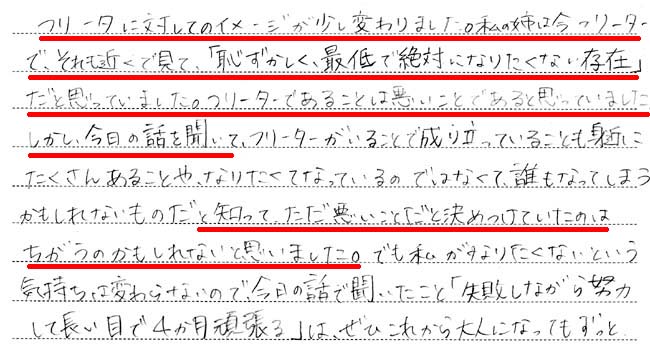 フリーターに対してのイメージが少し変わりました。私の姉は今フリーター
で、それも近くで見て、「恥ずかしく、最低で絶対になりたくない存在」
だと思っていました。フリーターであることは悪いことであると思っていました
しかし、今日の話を聞いて、フリーターがいることで成り立っていることも身近に
たくさんあることや、なりたくてなっているのではなくて、誰もなってしまう
かもしれないものだと知って、ただ悪いことだと決めつけていたのは
ちがうのかもしれないと思いました。でも私がなりたくないという
気持ちは変わらないので、今日の話で聞いたこと「失敗しながら努力
して長い目で4か月頑張る」は、ぜひこれから大人になってもずっと